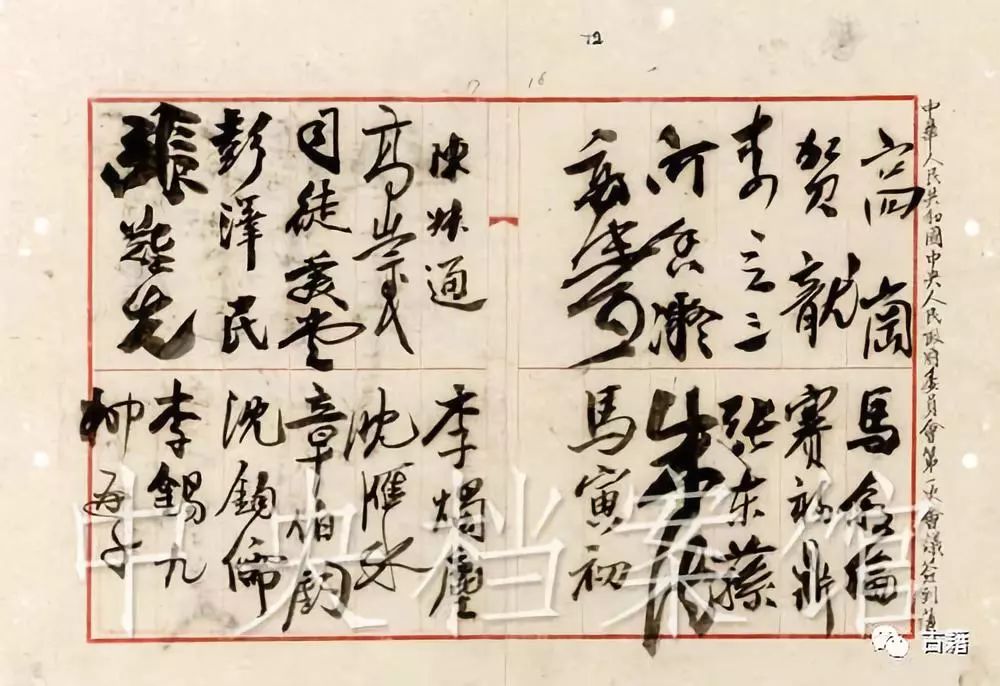 72
16
中華人民共和國中央人民政府委員會第一次會議簽到簿
高崗
賀龍
李立三
何香凝
馬敘倫
賽福鼎
張东蓀
馬寅初
陳叔通
高崇民
司徒美堂
彭澤民
張難先
李燭塵
沈雁冰
章伯鈞
沈鈞儒
李錫九
柳亞子
中央档案馆
古籍